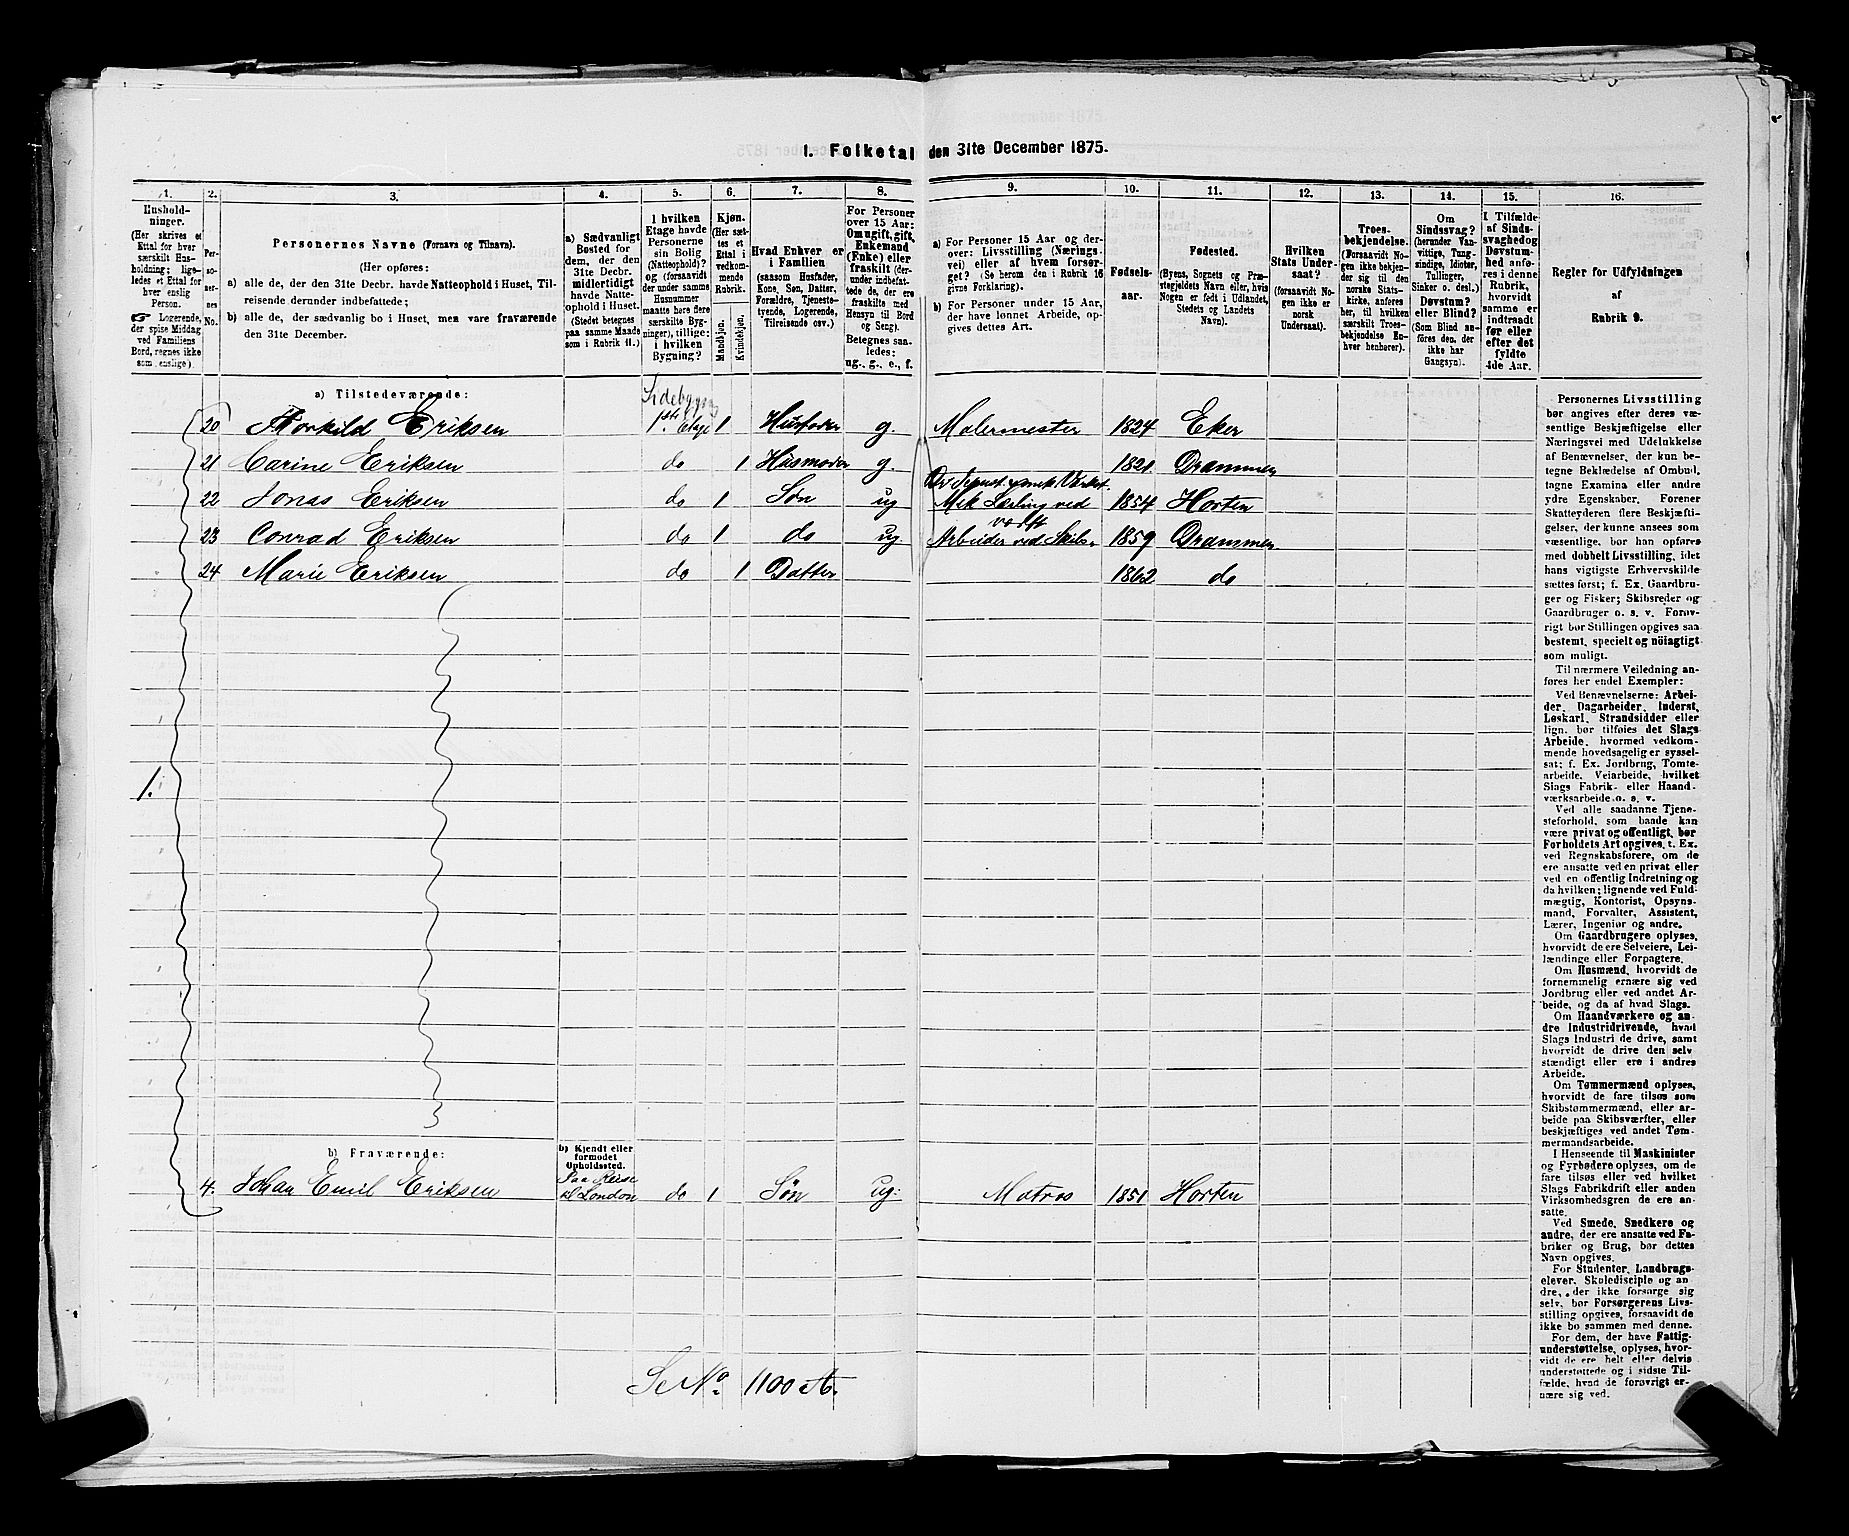 1. Folketal den 31te December 1875.
1. 2. 3. 4. 5. 6. 7. 8. 9. 10. 11. 12. 13. 14. 15. 16.
Husholdninger.
(Her skrives et
Ettal for hver
særskilt Husholdning;
ligeledes et Ettal for
hver enslig
Person.
☞ Logerende,
der spise Middag
ved Familiens
Bord, regnes ikke
som enslige).
Personernes No.
Personernes Navne (Fornavn og Tilnavn).
(Her opføres:
a) alle de, der den 31te Decbr. havde Natteophold i Huset, Tilreisende derunder indbefattede;
b) alle de, der sædvanlig bo i Huset, men vare fraværende
den 31te December.
a) Sædvanligt
Bosted for
dem, der den
31te Decbr.
midlertidigt
havde Natteophold
i Huset.
(Stedet betegnes
paa samme Maade
som i Rubrik 11.)
I hvilken
Etage havde
Personerne
sin Bolig
(Natteophold)?
og (forsaavidt
der under samme
Husnummer
maatte høre flere
særskilte Bygninger),
tillige:
i hvilken
Bygning?
Kjøn.
(Her sættes et
Ettal i
vedkommende
Rubrik.
Mandkjøn.
Kvindekjøn.
Hvad Enhver er
i Familien
(saasom Husfader,
Kone, Søn, Datter,
Forældre, Tjenestetyende,
Logerende,
Tilreisende osv.)
For Personer
over 15 Aar:
Om ugift, gift,
Enkemand
(Enke) eller
fraskilt (derunder
indbefattede de, der ere
fraskilte med
Hensyn til Bord
og Seng).
Betegnes saaledes:
ug., g., e., f.
a) For Personer 15 Aar og derover:
Livsstilling (Næringsvei)
eller af hvem forsørget?
(Se herom den i Rubrik 16
givne Forklaring).
b) For Personer under 15 Aar,
der have lønnet Arbeide, opgives
dettes Art.
Fødselsaar.
Fødested.
(Byens, Sognets og Præstegjeldets
Navn eller, hvis
Nogen er født i Udlandet,
Stedets og Landets
Navn).
Hvilken
Stats Undersaat?
(forsaavidt Nogen
ikke er
norsk
Undersaat).
Troesbekjendelse.
(Forsaavidt Nogen
ikke bekjender
sig til den
norske Statskirke,
anføres
her, til hvilken
særskilt Troesbekjendelse
Enhver henhører).
Om
Sindssvag?
(herunder Vanvittige,
Tungsindige, Idioter,
Tullinger,
Sinker o. desl.)
Døvstum?
eller Blind?
(Som Blind anføres
den, der
ikke har
Gangsyn).
I Tilfælde
af Sindssvaghed og
Døvstumhed
anføres
i denne
Rubrik,
hvorvidt
samme er
indtraadt
før eller
efter det
fyldte
4de Aar.
Regler for Udfyldningen
af
Rubrik 9.
a) Tilstedeværende: Sidebygn
20 Thorkild Eriksen 1ste Etage 1 Husfader g. Malermester 1824 Eker
21 Carine Eriksen do 1 Husmoder g. 1821 Drammen
22 Jonas Eriksen do 1 Søn ug Mek Lærling ved 1854 Horten
23 Conrad Eriksen do 1 do ug Arbeider ved Skibsværft 1859 Drammen
24 Marie Eriksen do 1 Datter 1862 do
1.
b) Fraværende: b) Kjendt eller
formodet
Opholdssted.
4. Johan Emil Eriksen Paa Reise til London do 1 Søn ug: Matros 1851 Horten
Se No. 1100 A.
Personernes Livsstilling
bør angives efter deres væsentlige
Beskjæftigelse eller
Næringsvei med Udelukkelse
af Benævnelser, der kun betegne
Beklædelse af Ombud,
tagne Examina eller andre
ydre Egenskaber. Forener
Skatteyderen flere Beskjæftigelser,
der kunne ansees som
væsentlige, bør han opføres
med dobbelt Livsstilling, idet
hans vigtigste Erhvervskilde
sættes først; f. Ex. Gaardbruger
og Fisker; Skibsreder og
Gaardbruger o. s. v. Forøvrigt
bør Stillingen opgives saa
bestemt, specielt og nöiagtigt
som muligt.
Til nærmere Veiledning anføres
her endel Exempler:
Ved Benævnelserne: Arbeider,
Dagarbeider, Inderst,
Løskarl, Strandsidder eller
lign. bør tilføies det Slags
Arbeide, hvormed vedkommende
hovedsagelig er sysselsat;
f. Ex. Jordbrug, Tomtearbeide,
Veiarbeide, hvilket
Slags Fabrik- eller Haandværksarbeide
o. s. v.
Ved alle saadanne Tjenesteforhold,
som baade kan
være privat og offentligt, bør
Forholdets Art opgives, t. Ex.
ved Regnskabsførere, om de
ere ansatte ved en privat eller
ved en offentlig Indretning og
da hvilken; lignende ved Fuldmægtig,
Kontorist, Opsynsmand,
Forvalter, Assistent,
Lærer, Ingeniør og andre.
Om Gaardbrugere oplyses,
hvorvidt de ere Selveiere, Leilændinge
eller Forpagtere.
Om Husmænd, hvorvidt de
fornemmelig ernære sig ved
Jordbrug eller ved andet Arbeide,
og da af hvad Slags.
Om Haandværkere og andre
Industridrivende, hvad
Slags Industri de drive, samt
hvorvidt de drive den selvstændigt
eller ere i andres
Arbeide.
Om Tømmermænd oplyses,
hvorvidt de fare tilsøs som
Skibstømmermænd, eller arbeide
paa Skibsværfter, eller
beskjæftiges ved andet Tømmermandsarbeide.
I Henseende til Maskinister
og Fyrbødere oplyses, om de
fare tilsøs eller ved hvilket
Slags Fabrikdrift eller anden
Virksomhedsgren de ere ansatte.
Ved Smede, Snedkere og
andre, der ere ansatte ved Fabriker
og Brug, bør dettes
Navn opgives.
For Studenter, Landbrugselever,
Skoledisciple og andre,
der ikke forsørge sig
selv, bør Forsørgerens Livsstilling
opgives, forsaavidt de
ikke bo sammen med denne.
For dem, der have Fattigunderstøttelse,
oplyses, hvorvidt
de ere helt eller delvis
understøttede og i sidste Tilfælde,
hvad de forøvrigt ernære
sig ved.